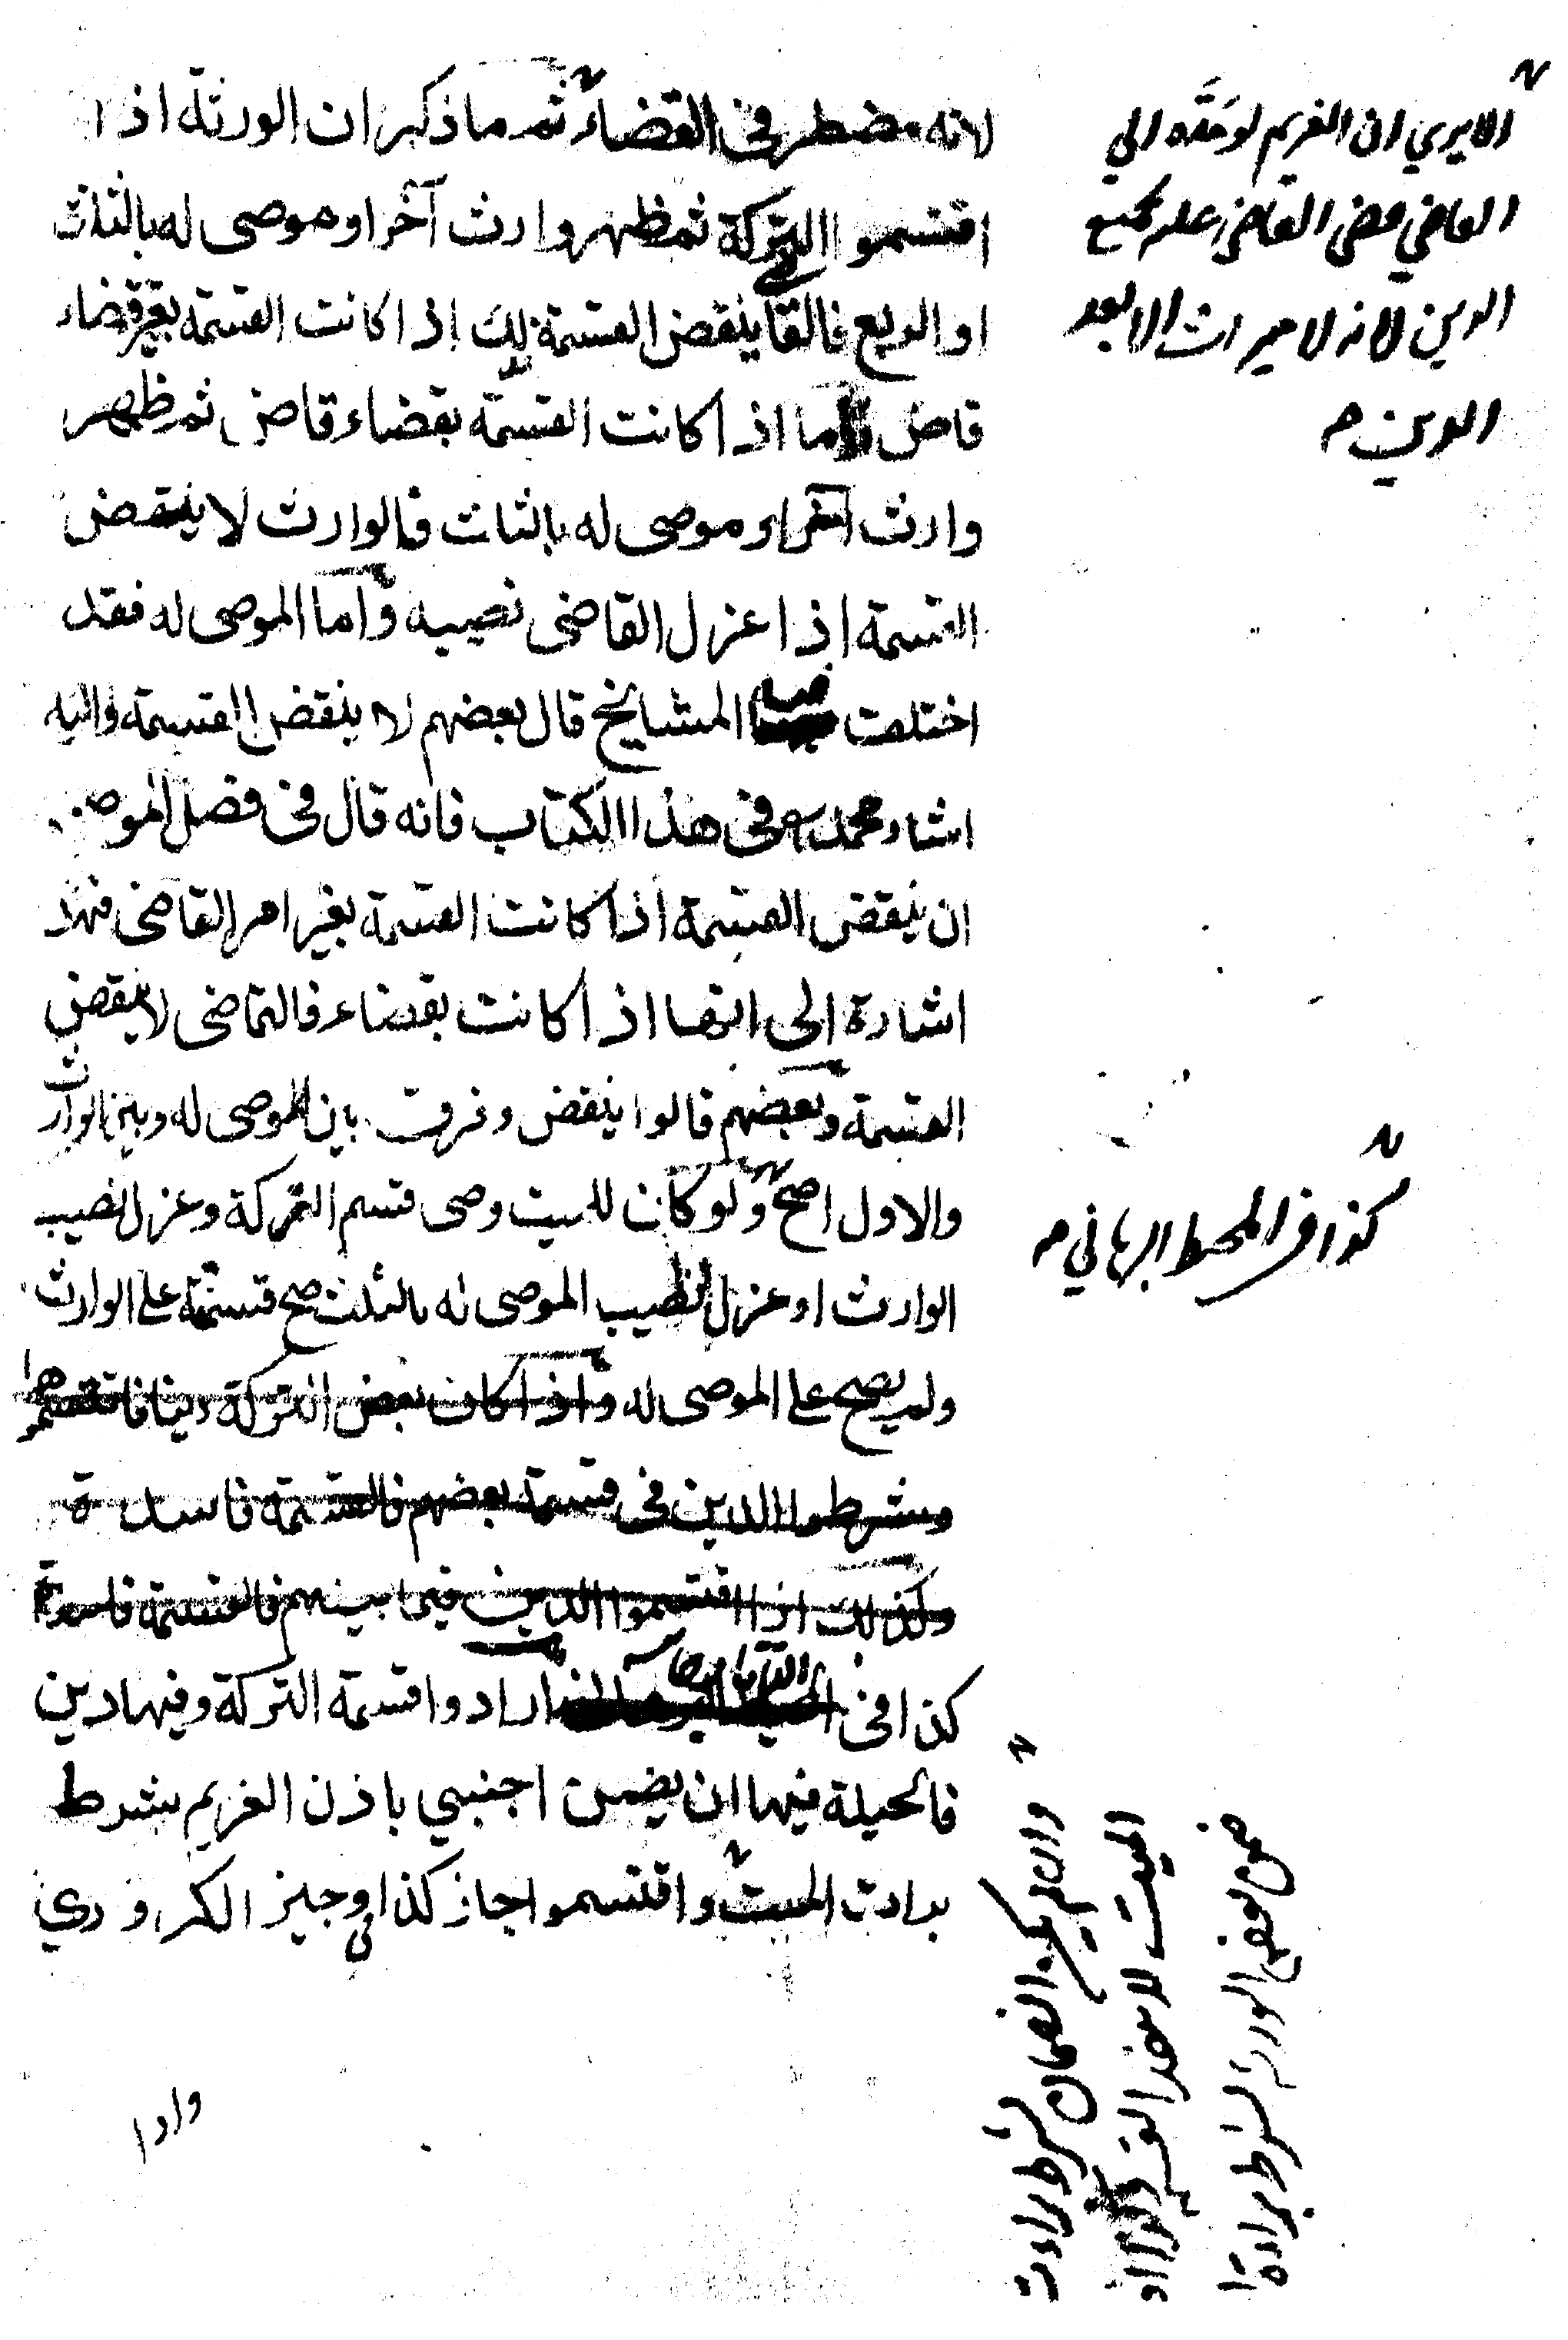 لانه مضطر فى القضاء ثم ما ذكر ان الورثة اذا
اقتسموا التركة ثم ظهر وارث آخر او موصى له بالثلث
او الربع فالقا ينقض القسمة اذا كانت القسمة بغير قضاء
قاض واما اذا كانت القسمة بقضاء قاض ثم ظهر
وارث آخر او موصى له بالثلث فالوارث لا ينقض
القسمة اذا عزل القاضى نصيبه واما الموصى له فقد
اختلف فيه المشايخ قال بعضهم لا ينقض القسمة واليه
اشار محمد فى هذا الكتاب فانه قال فى فصل الموصى
ان ينقض القسمة اذا كانت القسمة بغير امر القاضى فهذ
اشارة الى انها اذا كانت بقضاء فالقاضى لا ينقض
القسمة وبعضهم قالوا ينقض وفرقت بين الموصى له وبين الوارث
والاول اصح ولو كان للميت وصى قسم التركة وعزل نصيب
الوارث او عزل نصيب الموصى له بالثلث صح قسمته على الوارث
ولم يصح على الموصى له واذا كان بعض التركة دينا فاقتسموا
وشرطوا الدين فى قسمة بعضهم فالقسمة فاسدة
وكذلك اذا اقتسموا الدين فيما بينهم فالقسمة فاسدة
كذا فى ارادوا قسمة التركة وفيها دين
فالحيلة فيها ان يضمن اجنبي باذن الغريم بشرط
براءت الميت واقتسموا جاز كذا فى وجيز الكردري
واذا
الا يرى ان الغريم لو قدمه الى
القاضي قضى القاضى عليه بجميع
الدين لانه لا ميراث الا بعد
الدين م
كذا فى المحيط البرهاني م
وان لم يكن الضمان بشرط براءت
الميت لا ينفذ
ضمن بعض الورثة بشرط براءة